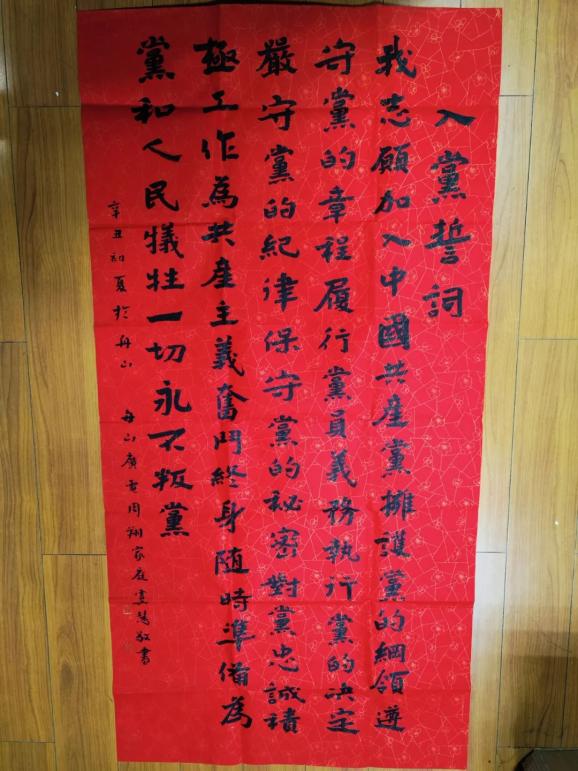 入黨誓詞
我志願加入中國共產黨擁護黨的綱領遵
守黨的章程履行黨員義務執行黨的决定
嚴守黨的紀律保守黨的秘密對黨忠誠積
極工作為共產主義奮鬥終身隨時準備為
黨和人民犧牲一切永不叛黨
辛丑初夏於舟山 舟山廣電周翔家庭敬書